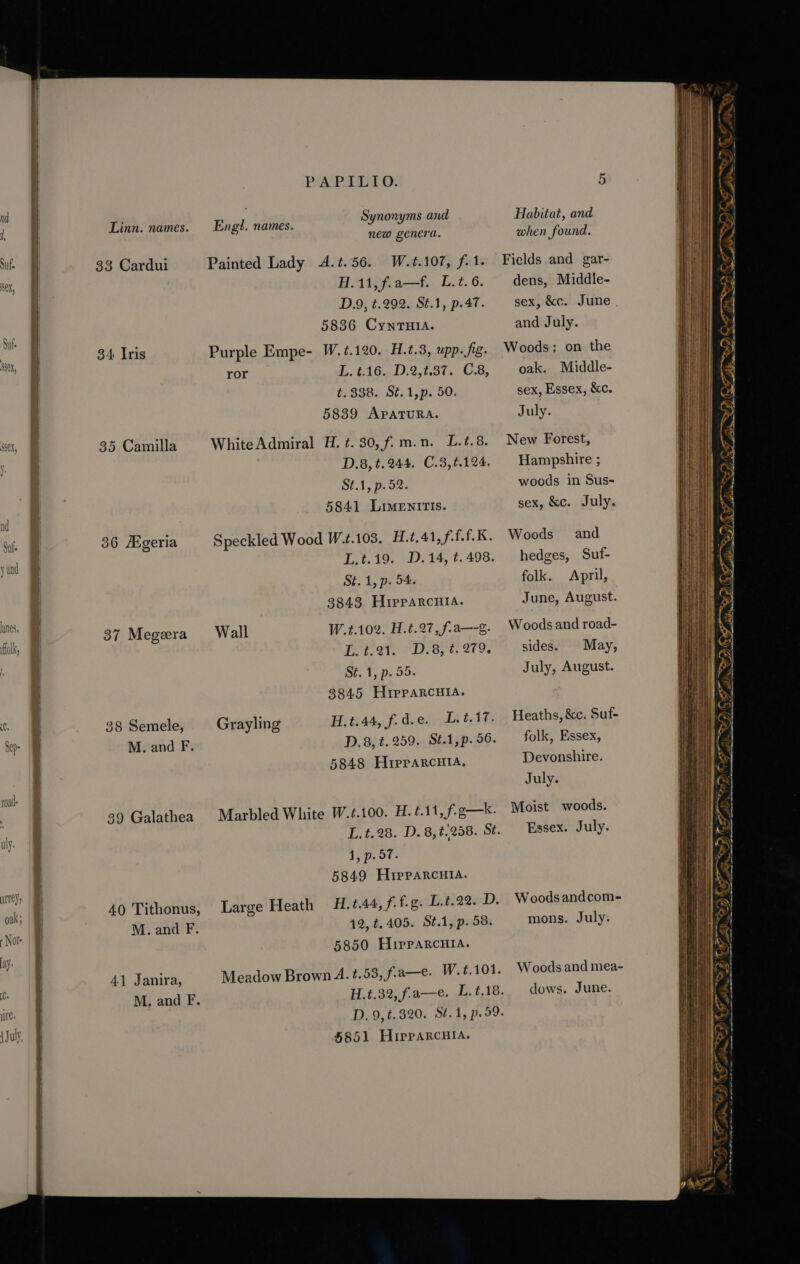 PAPILIO. 5
Linn. names. Engl. names. Synonyms and new genera. Habitat, and when found.
33 Cardui Painted Lady A.t.56. W.t.107, f.1. Fields and gar-
H.11,f.a—f. L.t.6. dens, Middle-
D.9, t.292. St.1, p.47. sex, &c. June
5836 CYNTHIA. and July.
34 Iris Purple Empe- W.t.120. H.t.3, upp. fig. Woods: on the
ror L.t.16. D.2,t.37. C.8, oak. Middle-
t.338. St.1,p. 50. sex, Essex, &c.
5839 APATURA. July.
35 Camilla White Admiral H.t.30,f.m.n. L.t.8. New Forest,
D.8,t.244. C.3,t.124. Hampshire;
St.1, p.52. woods in Sus-
5841 LIMENITIS. sex, &c. July.
36 Ægeria Speckled Wood W.t.103. H.t.41,f.f.f.K. Woods and
L.t.19. D.14, t.498. hedges, Suf-
St. 1, p. 54. folk. April,
3843 HIPPARCHIA. June, August.
37 Megæra Wall W.t.102. H.t.27,f.a—g. Woods and road-
L.t.21. D.8, t.279, sides. May,
St. 1, p. 55. July, August.
3845 HIPPARCHIA.
38 Semele, Grayling H.t.44, f.d.e. L.t.17. Heaths,&c. Suf-
M. and F. D.8,t.259. St.1,p.56. folk, Essex,
5848 HIPPARCHIA. Devonshire.
July.
39 Galathea Marbled White W.t.100. H.t.11,f.g—k. Moist woods.
L.t.28. D.8,t.258. St. Essex. July.
1, p.57.
5849 HIPPARCHIA.
40 Tithonus, Large Heath H.t.44,f.f.g. L.t.22. D. Woods and com-
M. and F. 12, t.405. St.1, p.58. mons. July.
5850 HIPPARCHIA.
41 Janira, Meadow Brown A.t.53,f.a—e. W.t.101. Woods and mea-
M. and F. H.t.32,f.a—e. L.t.18. dows. June.
D.9,t.320. St.1, p.59.
5851 HIPPARCHIA.